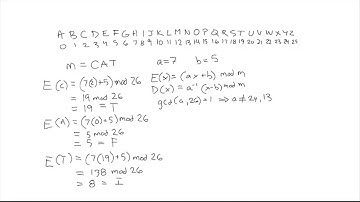 A B C D E F G H I J K L M N O P Q R S T U V W X Y Z
0 1 2 3 4 5 6 7 8 9 10 11 12 13 14 15 16 17 18 19 20 21 22 23 24 25
m = CAT a=7 b=5
E(C) = (7(2)+5) mod 26
= 19 mod 26
= 19 = T
E(A) = (7(0)+5) mod 26
= 5 mod 26
= 5 = F
E(T) = (7(19)+5) mod 26
= 138 mod 26
= 8 = I
E(x) = (ax+b) mod m
D(x) = a⁻¹ (x-b) mod m
gcd(a,26)=1 ⇒ a≠2k,13